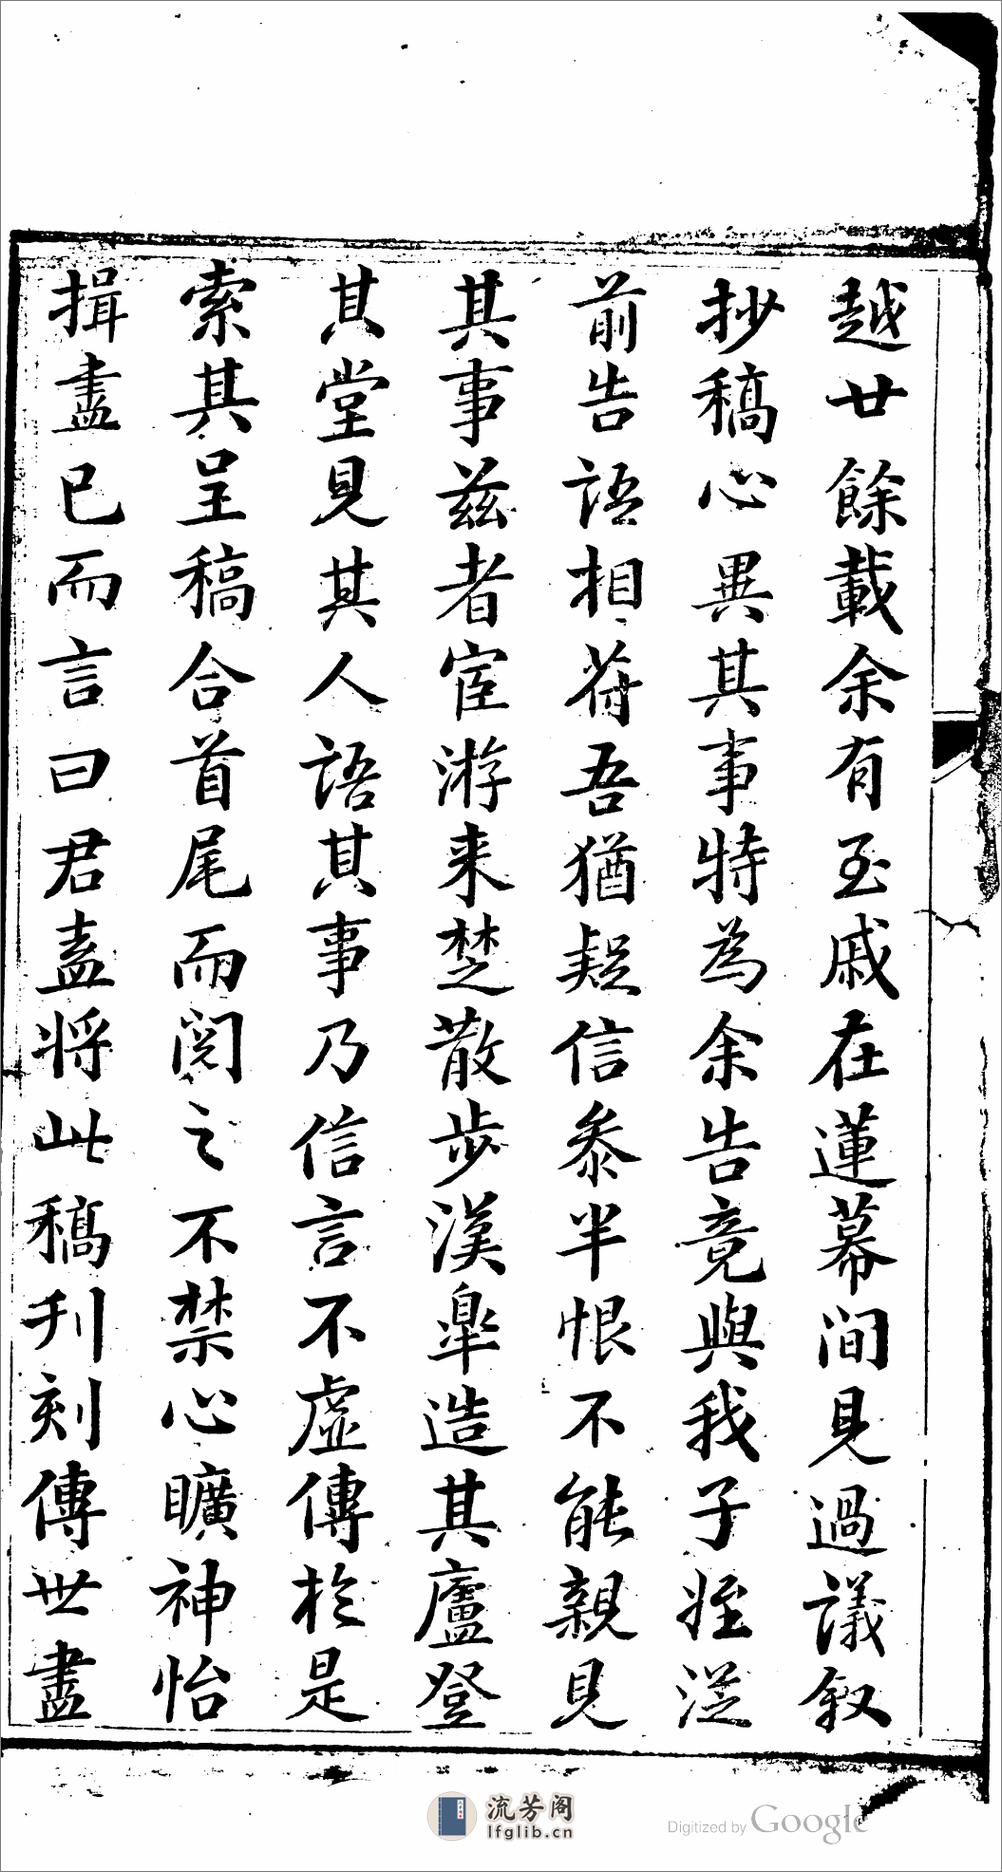 越廿餘載余有至戚在蓮幕間見過議叙
抄稿心異其事特為余告竟與我子姪從
前告語相符吾猶疑信叅半恨不能親見
其事兹者宦游来楚散步漢臯造其廬登
其堂見其人語其事乃信言不虛傳於是
索其呈稿合首尾而閱之不禁心曠神怡
揖盡已而言曰君盍將此稿刋刻傳世盡
流芳阁
lfglib.cn
Digitized by Google